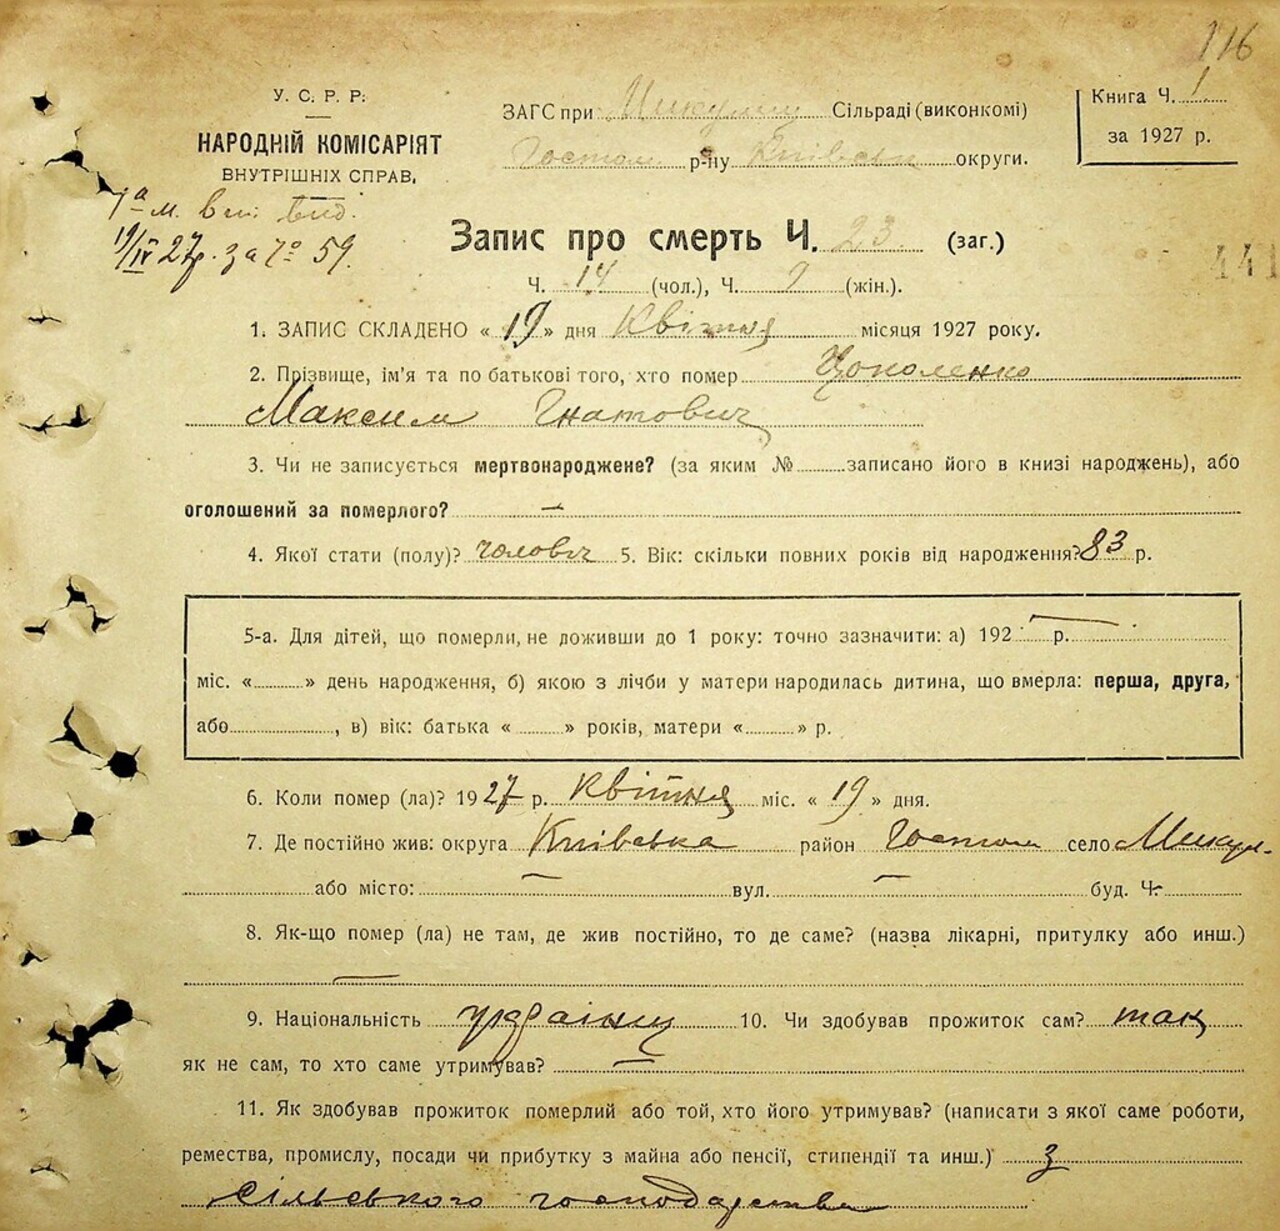 116
У. С. Р. Р.
НАРОДНІЙ КОМІСАРІЯТ
ВНУТРІШНІХ СПРАВ.
ЗАГС при Микулиц Сільраді (виконкомі)
Гостом р-ну Київськ округи.
Книга Ч. 1
за 1927 р.
19/IV 27р. за № 59.
Запис про смерть Ч. 23 (заг.)
441
Ч. 14 (чол.), Ч. 9 (жін.).
1. ЗАПИС СКЛАДЕНО « 19 » дня Квітня місяця 1927 року.
2. Прізвище, ім'я та по батькові того, хто помер Цоколенко
Максим Гнатович
3. Чи не записується мертвонароджене? (за яким № записано його в книзі народжень), або
оголошений за померлого? —
4. Якої стати (полу)? чоловіч 5. Вік: скільки повних років від народження? 83 р.
5-а. Для дітей, що померли, не доживши до 1 року: точно зазначити: а) 192 р.
міс. « » день народження, б) якою з лічби у матери народилась дитина, що вмерла: перша, друга,
або , в) вік: батька « » років, матери « » р.
6. Коли помер (ла)? 1927 р. Квітня міс. « 19 » дня.
7. Де постійно жив: округа Київська район Гостом село Микул-
або місто: — вул. — буд. Ч.
8. Як-що помер (ла) не там, де жив постійно, то де саме? (назва лікарні, притулку або инш.)
—
9. Національність україн 10. Чи здобував прожиток сам? так
як не сам, то хто саме утримував? —
11. Як здобував прожиток померлий або той, хто його утримував? (написати з якої саме роботи,
ремества, промислу, посади чи прибутку з майна або пенсії, стипендії та инш.) з
сільського господарства